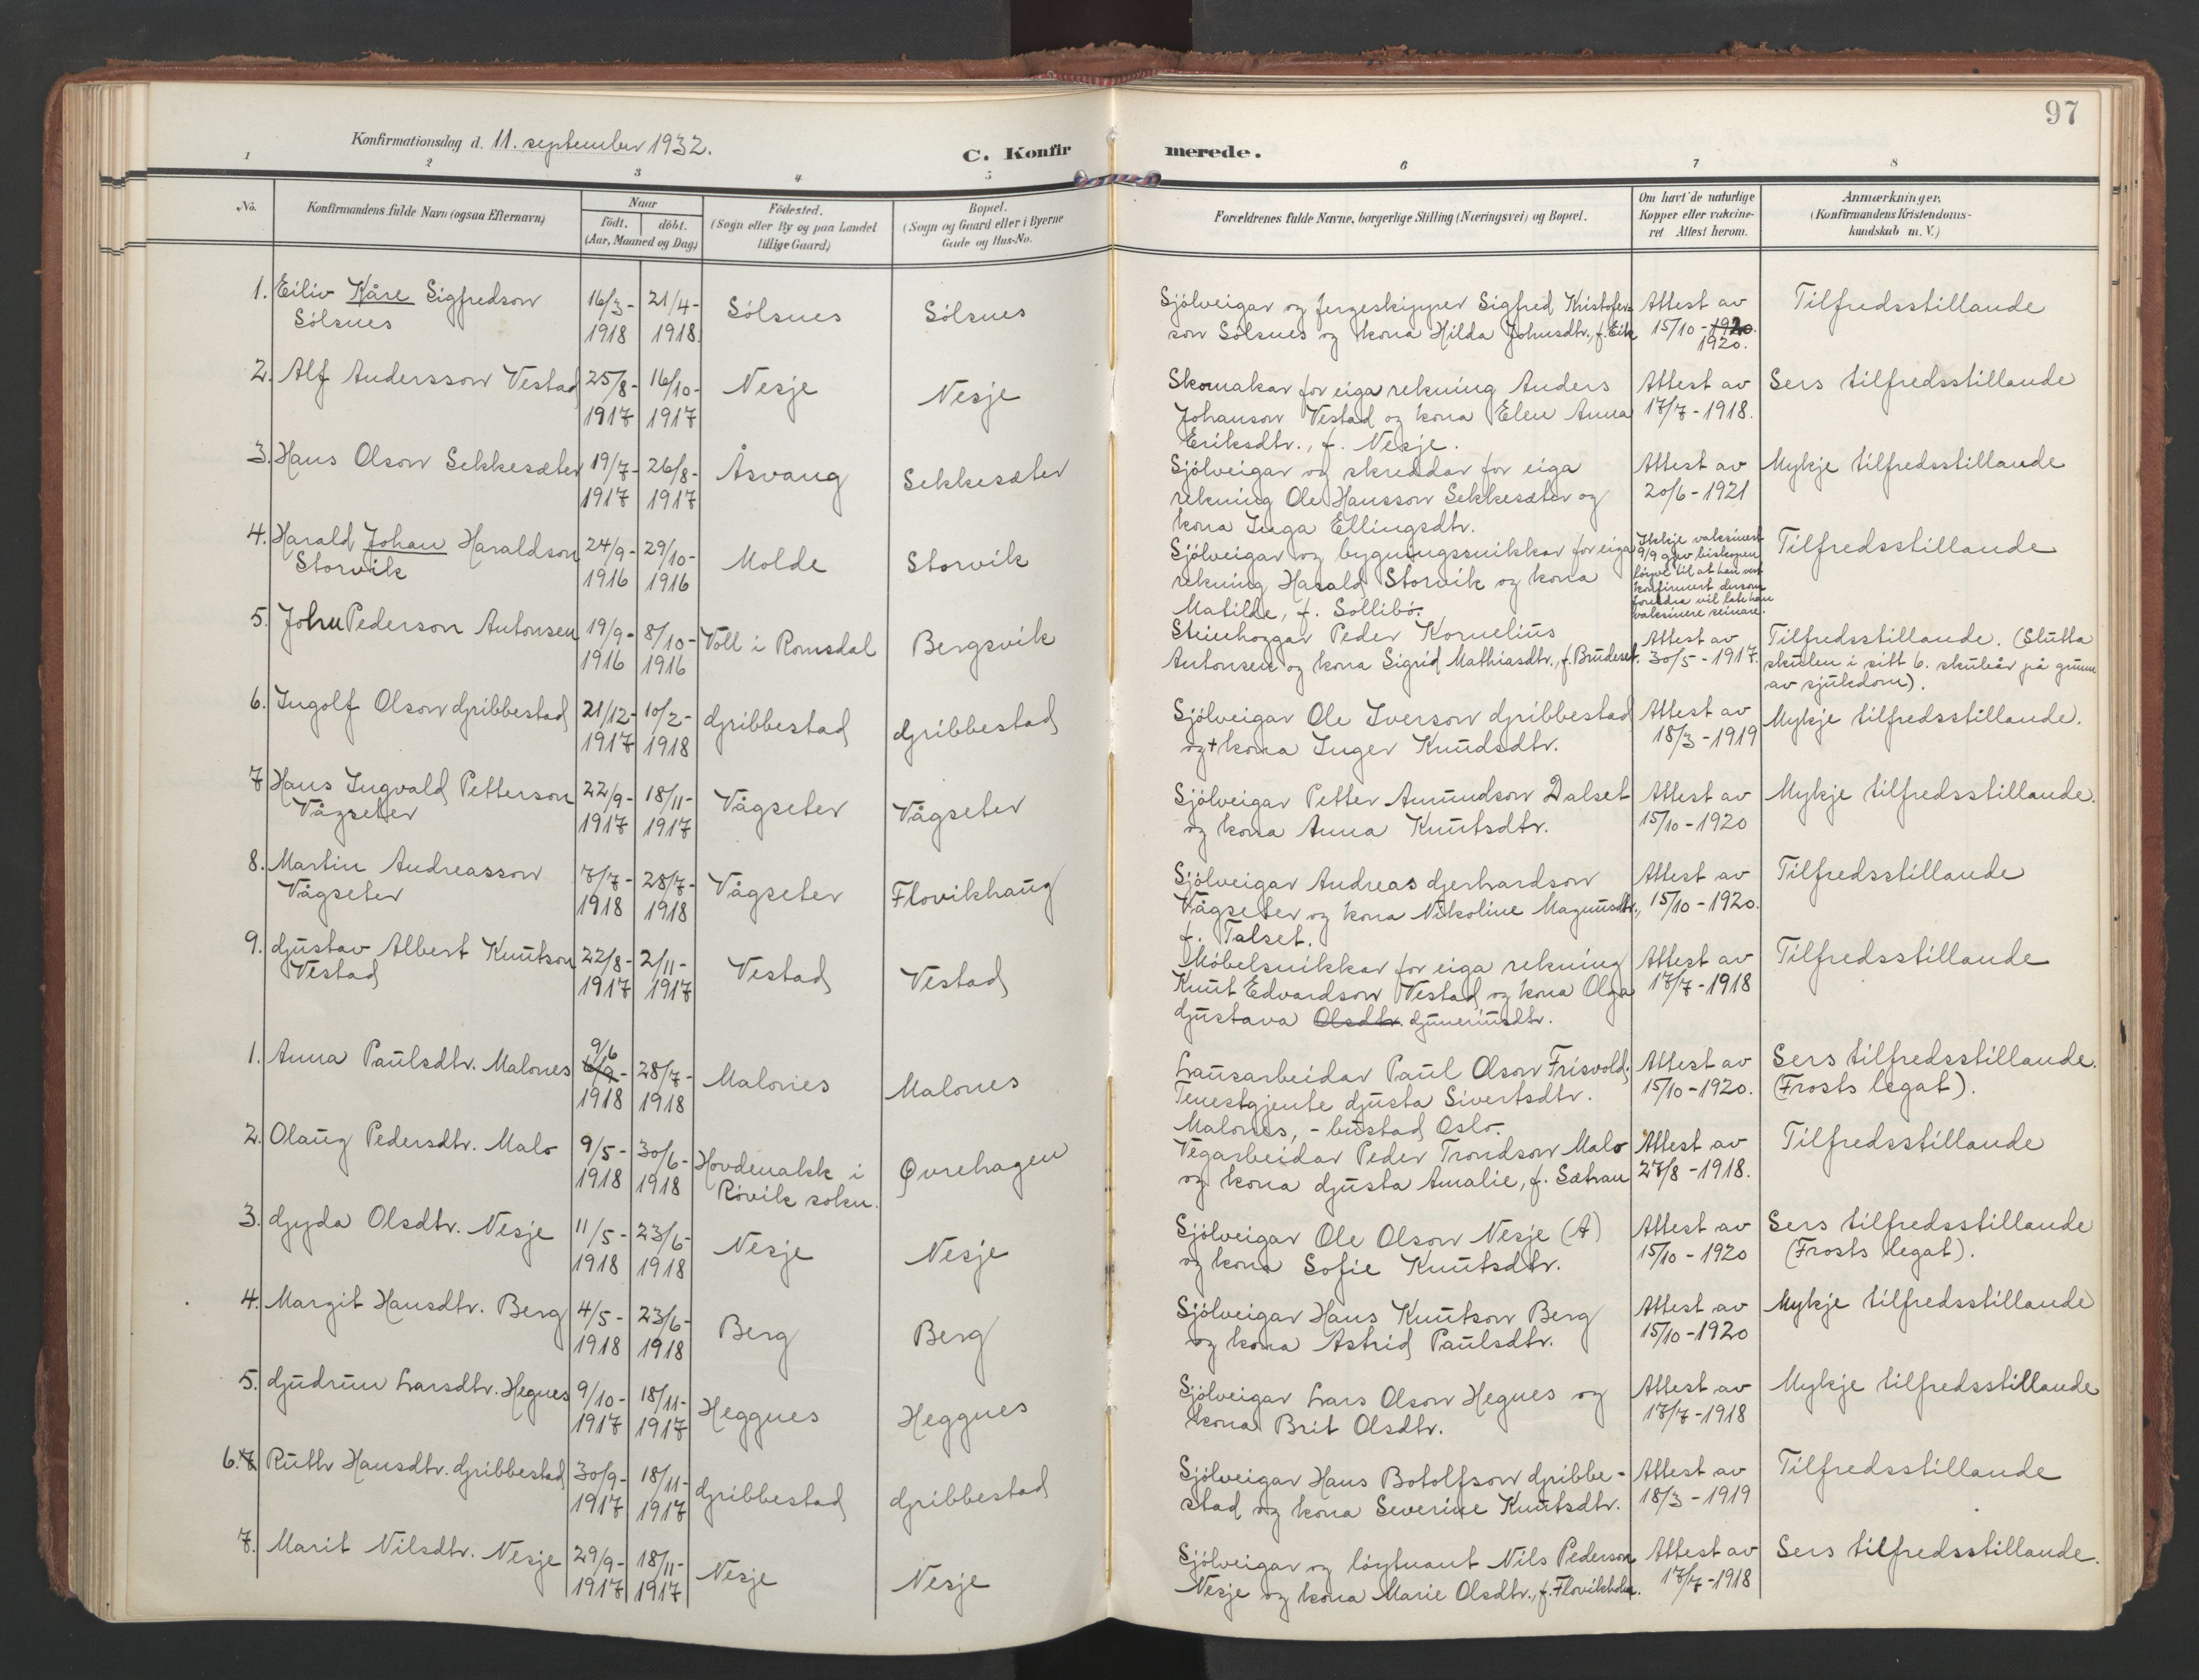 97
Konfirmationsdag d. 11. september 1932.
C. Konfirmerede.
1 2 3 4 5 6 7 8
No.
Konfirmandens fulde Navn (ogsaa Efternavn)
Naar
født. døbt.
(Aar, Maaned og Dag)
Fødested.
(Sogn eller By og paa Landet
tillige Gaard)
Bopæl.
(Sogn og Gaard eller i Byerne
Gade og Hus-No.
Forældrenes fulde Navne, borgerlige Stilling (Næringsvei) og Bopæl.
Om havt de naturlige
Kopper eller vakcine-
ret Attest herom.
Anmærkninger.
(Konfirmandens Kristendoms-
kundskab m. V.)
1. Eiliv Kåre Sigfredson
Sølsnes
16/3- 1918
21/4- 1918
Sølsnes
Sølsnes
Sjølveigar og fergeskipper Sigfred Kristofer-
son Sølsnes og kona Hilda Johnsdtr., f. Eik
Attest av
15/10-1920.
1920.
Tilfredsstillande
2. Alf Andersson Vestad
25/8- 1917
16/10- 1917
Nesje
Nesje
Skomakar for eiga rekning Anders
Johanson Vestad og kona Elen Anna
Eriksdtr., f. Nesje.
Attest av
17/7-1918.
Sers tilfredsstillande
3. Hans Olson Sekkesæter
19/7- 1917
26/8- 1917
Åsvang
Sekkesæter
Sjølveigar og skreddar for eiga
rekning Ole Hansson Sekkesæter og
kona Inga Ellingsdtr.
Attest av
20/6-1921
Mykje tilfredsstillande
4. Harald Johan Haraldson
Storvik
24/9- 1916
29/10- 1916
Molde
Storvik
Sjølveigar og bygningssnikkar for eiga
rekning Harald Storvik og kona
Matilde, f. Sollibø.
Ikkje vaksinert
9/9 gav biskopen
løyve til at han vert
konfirmert dersom
foreldra vil late han
vaksinere seinare.
Tilfredsstillande
5. John Pederson Antonsen
19/9- 1916
8/10- 1916
Voll i Romsdal
Bergsvik
Steinhoggar Peder Kornelius
Antonsen og kona Sigrid Mathiasdtr., f. Brudeset.
Attest av
30/5-1917.
Tilfredsstillande. (Slutta
skulen i sitt 6. skuleår på grunn
av sjukdom).
6. Ingolf Olson Gribbestad
21/12- 1917
10/2- 1918
Gribbestad
Gribbestad
Sjølveigar Ole Iverson Gribbestad
og + kona Inger Knudsdtr.
Attest av
18/3-1919
Mykje tilfredsstillande.
7 Hans Ingvald Petterson
Vågseter
22/9- 1917
18/11- 1917
Vågseter
Vågseter
Sjølveigar Petter Amundson Dalset
og kona Anna Knutsdtr.
Attest av
15/10-1920
Mykje tilfredsstillande.
8. Martin Andreasson
Vågseter
7/7- 1918
28/7- 1918
Vågseter
Flovikhaug
Sjølveigar Andreas Gerhardson
Vågseter og kona Nikoline Magnusdtr.,
f. Talset.
Attest av
15/10-1920.
Tilfredsstillande
9. Gustav Albert Knutson
Vestad
22/8- 1917
2/11- 1917
Vestad
Vestad
Møbelsnikkar for eiga rekning
Knut Edvardson Vestad og kona Olga
Gustava Olsdtr. Guneriusdtr.
Attest av
17/7-1918
Tilfredsstillande
1. Anna Paulsdtr. Malones
9/6
6/9- 1918
28/7- 1918
Malones
Malones
Lausarbeidar Paul Olson Frisvold.
Tenestgjente Gusta Sivertsdtr.
Malones, - bustad Oslo.
Attest av
15/10-1920.
Sers tilfredsstillande.
(Frosts legat).
2. Olaug Pedersdtr. Malo
9/5- 1918
30/6- 1918
Hovdenakk i
Røvik sokn.
Øvrehagen
Vegarbeidar Peder Trondson Malo
og kona Gusta Amalie, f. Sætran
Attest av
27/8-1918.
Tilfredsstillande
3. Gyda Olsdtr. Nesje
11/5- 1918
23/6- 1918
Nesje
Nesje
Sjølveigar Ole Olson Nesje (A)
og kona Sofie Knutsdtr.
Attest av
15/10-1920
Sers tilfredsstillande
(Frosts legat).
4. Margit Hansdtr. Berg
4/5- 1918
23/6- 1918
Berg
Berg
Sjølveigar Hans Knutson Berg
og kona Astrid Paulsdtr.
Attest av
15/10-1920
Mykje tilfredsstillande
5. Gudrun Larsdtr. Hegnes
9/10- 1917
18/11- 1917
Heggnes
Heggnes
Sjølveigar Lars Olson Hegnes og
kona Brit Olsdtr.
Attest av
17/7-1918
Mykje tilfredsstillande
6. 7 Ruth Hansdtr. Gribbestad
30/9- 1917
18/11- 1917
Gribbestad
Gribbestad
Sjølveigar Hans Botolfson Gribbe-
stad og kona Severine Knutsdtr.
Attest av
18/3-1919
Tilfredsstillande
7. Marit Nilsdtr. Nesje
29/9- 1917
18/11- 1917
Nesje
Nesje
Sjølveigar og løytnant Nils Pederson
Nesje og kona Marie Olsdtr., f. Flovikholm.
Attest av
17/7-1918
Sers tilfredsstillande.